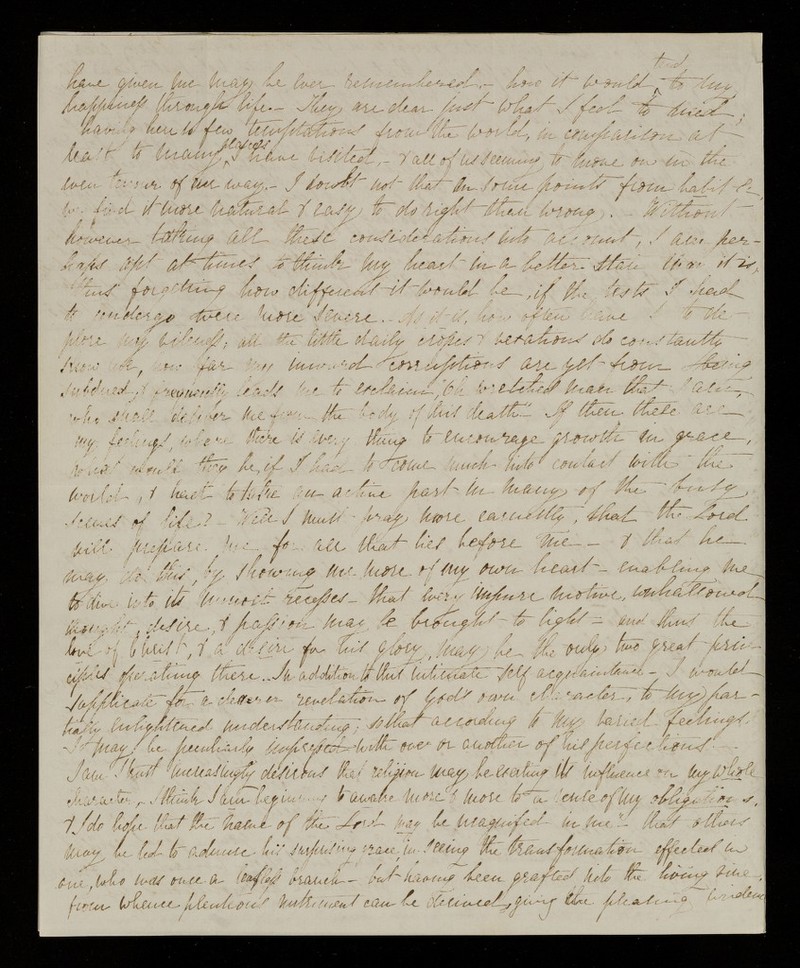 tend
have given me may be ever remembered, - how it would to my
happiness through life. - They are dear just what I feel to need;
having here so few temptations from the world, in comparison at
least to many places I have visited, - & all of us seeming to move on in the
even tenour of our way, - I doubt not that in some points from habit &c
we find it more natural & easy to do right than wrong. - Without
however taking all these considerations into account, I am per-
haps apt at times to think my heart in a better state than it is,
thus forgetting how different it would be, if the tests I had
to undergo were more severe. - As it is, how often have I to de-
plore my vileness; all the little daily crosses & vexations do constantly
show me, how far my inward corruptions are yet from being
subdued, & frequently leads me to exclaim, "Oh wretched man that I am,
who shall deliver me from the body of this death." If then these are
my feelings, where there is every thing to encourage growth in grace,
what would they be, if I had to come much into contact with the
world, & had to take an active part in many of the busy
scenes of life? - Well I must pray more earnestly, that the Lord
will prepare me for all that lies before me - & that he
may do this, by showing me more of my own heart - enabling me
to dive into its inmost recesses - that every impure motive, unhallowed
thought, desire, & passion may be brought to light - and thus the
love of Christ, & a desire for his glory, may be the only two great prin-
ciples operating there. - In addition to this intimate self acquaintance - I would
supplicate for a clearer revelation of God's own character, to my par-
tially enlightened understanding; so that according to my varied feelings
I may be peculiarly impressed with one or another of his perfections. -
I am I trust increasingly desirous that religion may be exerting its influence on my whole
character, - I think I am beginning to awake more & more to a sense of my obligations,
& I do hope that the name of the Lord may be magnified in me - that others
may be led to admire his surprising grace, in seeing the transformation effected in
one, who was once a leafless branch - but having been grafted into the living vine,
from whence plenteous nutriment can be derived, giving the pleasing evidence